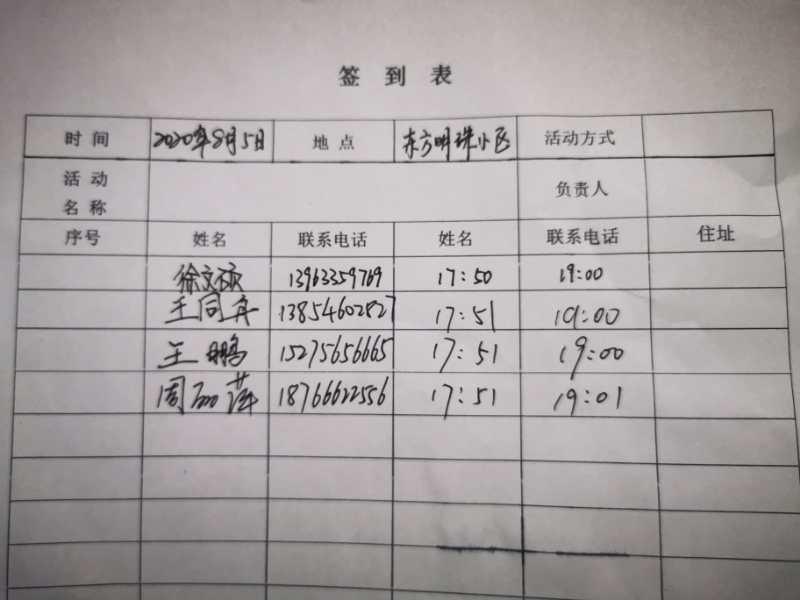 签到表
时间 2020年8月5日 地点 东方明珠小区 活动方式
活动名称 负责人
序号 姓名 联系电话 姓名 联系电话 住址
徐文硕 13963359769 17:50 19:00
王同舟 13854602827 17:51 19:00
王鹏 15275656665 17:51 19:00
周丽萍 18766622556 17:51 19:01